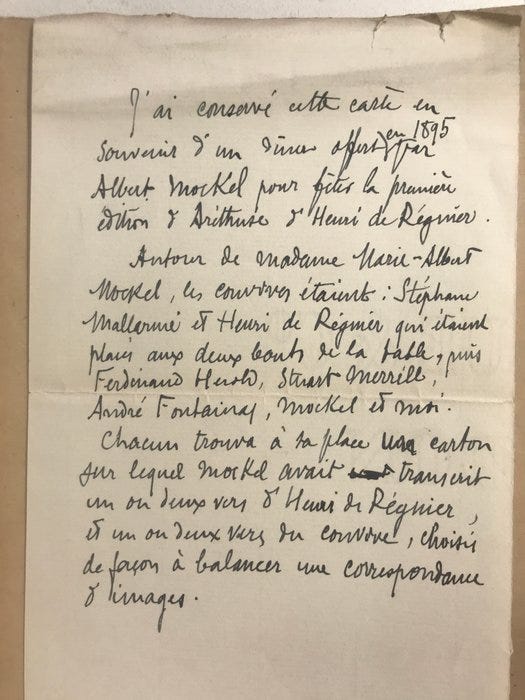 J'ai conservé cette carte en
souvenir d'un dîner offert en 1895 par
Albert Mockel pour fêter la première
édition d'Aréthuse d'Henri de Régnier.
Autour de madame Marie-Albert
Mockel, les convives étaient : Stéphane
Mallarmé et Henri de Régnier qui étaient
placés aux deux bouts de la table, puis
Ferdinand Herold, Stuart Merrill,
André Fontainas, Mockel et moi.
Chacun trouva à sa place un carton
sur lequel Mockel avait transcrit
un ou deux vers d'Henri de Régnier,
et un ou deux vers du convive, choisis
de façon à balancer une correspondance
d'images.